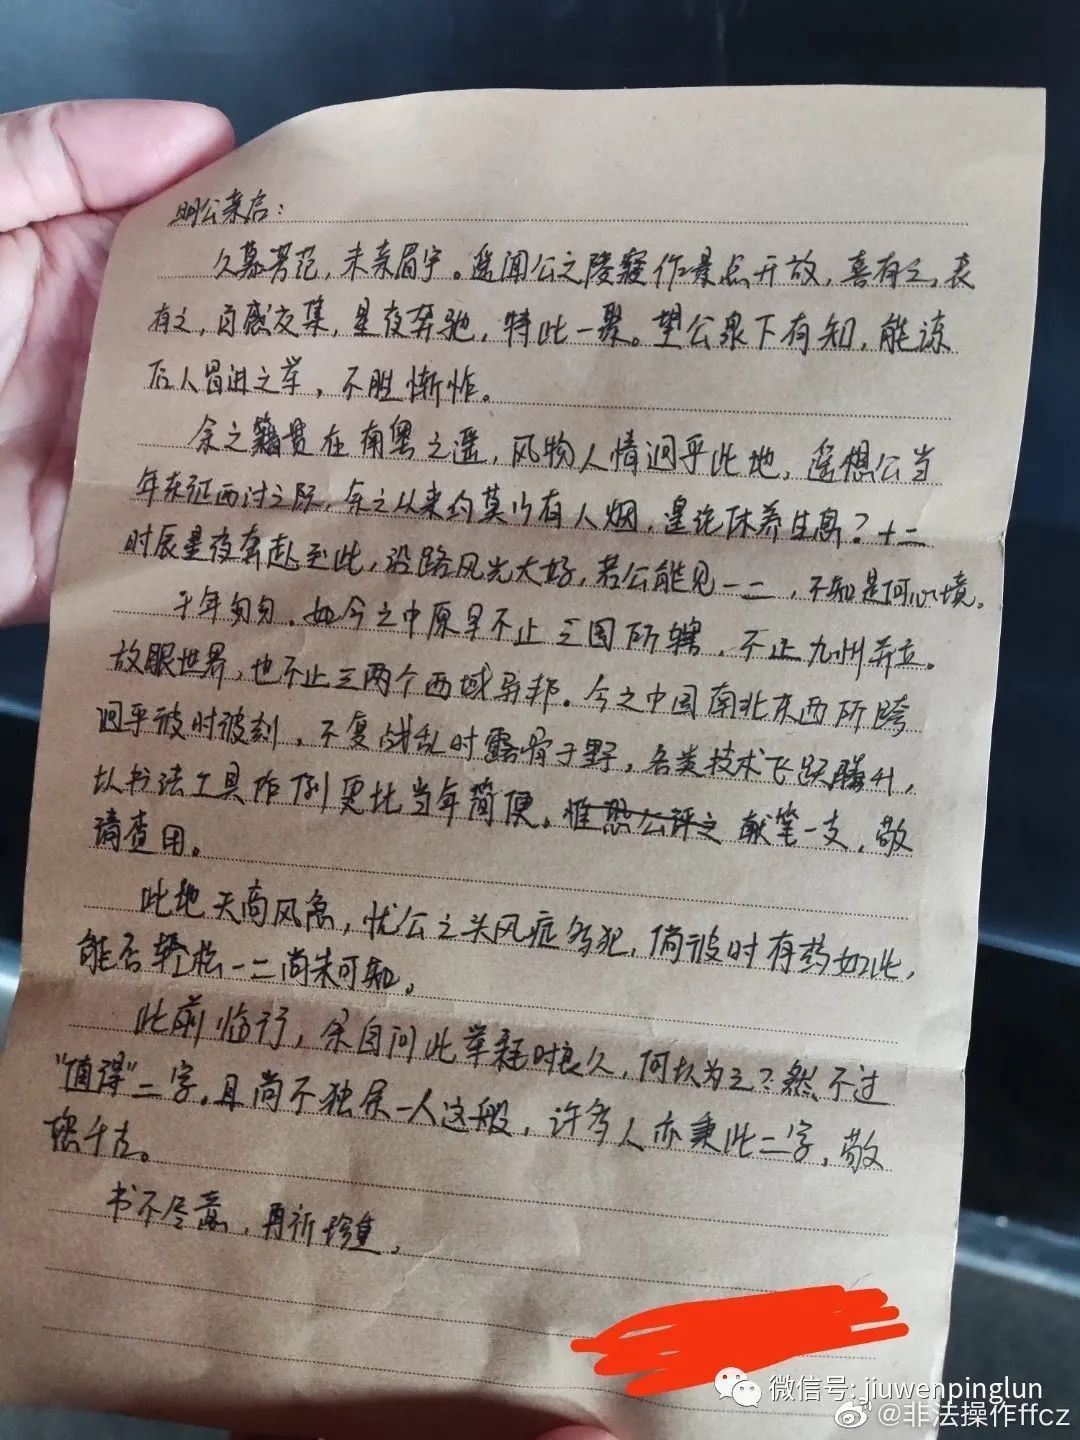 明公亲启：
久慕芳范，未亲眉宇。遥闻公之陵寝作景点开放，喜有之，哀
有之，百感交集，星夜奔驰，特此一聚。望公泉下有知，能谅
后人冒进之举，不胜惭怍。
余之籍贯在南粤之遥，风物人情迥乎此地，遥想公当
年东征西讨之际，余之以来约莫少有人烟，遑论休养生息？十二
时辰星夜奔赴至此，沿路风光大好，若公能见一二，不知是何心境。
千年匆匆。如今之中原早不止三国所辖，不止九州并立。
放眼世界，也不止三两个西域异邦。今之中国南北东西所跨
迥乎彼时彼刻，不复战乱时露骨于野，各类技术飞跃腾升，
以书法工具作例更比当年简便。惟恐公评之 献笔一支，敬
请查用。
此地天高风急，忧公之头风症多犯，倘彼时有药如此，
能否轻松一二尚未可知。
此前临行，余自问此举耗时良久，何以为之？然不过
“值得”二字。且尚不独余一人这般，许多人亦秉此二字，敬
候千古。
书不尽意，再祈珍重，
微信号: jiuwenpinglun
@非法操作ffcz